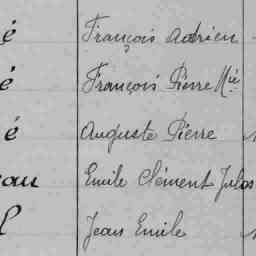 é François Adrien
é François Pierre Mie
é Auguste Pierre
eau Emile Clément Jules
l Jean Emile